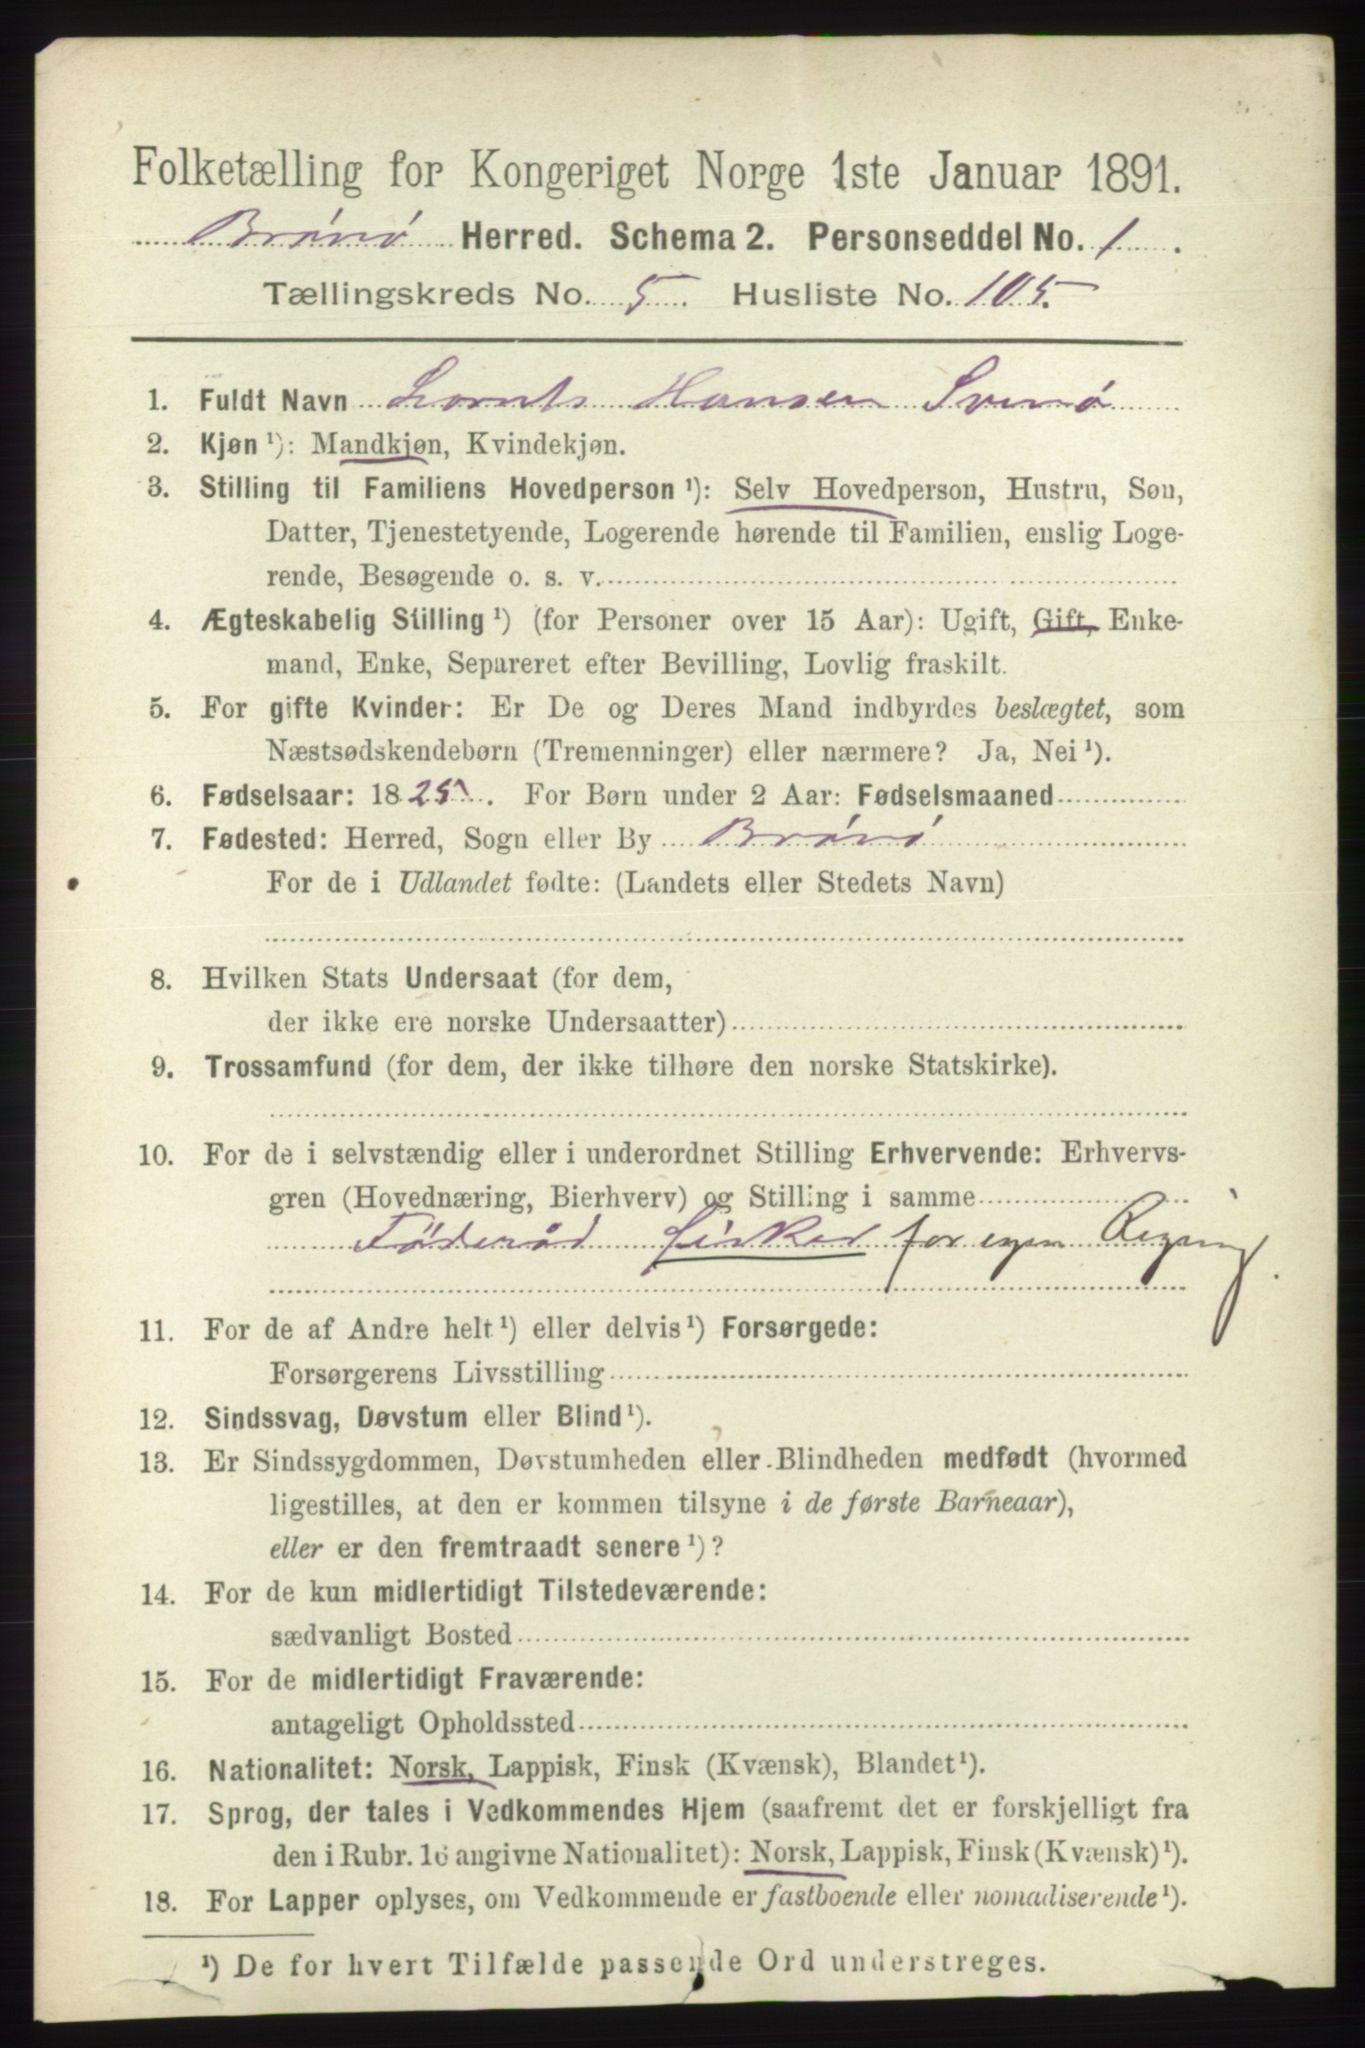 Folketælling for Kongeriget Norge 1ste Januar 1891.
Brønø Herred. Schema 2. Personseddel No. 1.
Tællingskreds No. 5. Husliste No. 105.
1. Fuldt Navn Lornts Hansen Svenø
2. Kjøn ¹): Mandkjøn, Kvindekjøn.
3. Stilling til Familiens Hovedperson ¹): Selv Hovedperson, Hustru, Søn,
Datter, Tjenestetyende, Logerende hørende til Familien, enslig Loge-
rende, Besøgende o. s. v.
4. Ægteskabelig Stilling ¹) (for Personer over 15 Aar): Ugift, Gift, Enke-
mand, Enke, Separeret efter Bevilling, Lovlig fraskilt.
5. For gifte Kvinder: Er De og Deres Mand indbyrdes beslægtet, som
Næstsødskendebørn (Tremenninger) eller nærmere? Ja, Nei ¹).
6. Fødselsaar: 1825. For Børn under 2 Aar: Fødselsmaaned
7. Fødested: Herred, Sogn eller By Brønø
For de i Udlandet fødte: (Landets eller Stedets Navn)
8. Hvilken Stats Undersaat (for dem,
der ikke ere norske Undersaatter)
9. Trossamfund (for dem, der ikke tilhøre den norske Statskirke).
10. For de i selvstændig eller i underordnet Stilling Erhvervende: Erhvervs-
gren (Hovednæring, Bierhverv) og Stilling i samme
Föderåd fisker for egen Regning.
11. For de af Andre helt ¹) eller delvis ¹) Forsørgede:
Forsørgerens Livsstilling
12. Sindssvag, Døvstum eller Blind ¹).
13. Er Sindssygdommen, Døvstumheden eller Blindheden medfødt (hvormed
ligestilles, at den er kommen tilsyne i de første Barneaar),
eller er den fremtraadt senere ¹)?
14. For de kun midlertidigt Tilstedeværende:
sædvanligt Bosted
15. For de midlertidigt Fraværende:
antageligt Opholdssted
16. Nationalitet: Norsk, Lappisk, Finsk (Kvænsk), Blandet ¹).
17. Sprog, der tales i Vedkommendes Hjem (saafremt det er forskjelligt fra
den i Rubr. 16 angivne Nationalitet): Norsk, Lappisk, Finsk (Kvænsk) ¹).
18. For Lapper oplyses, om Vedkommende er fastboende eller nomadiserende ¹).
¹) De for hvert Tilfælde passende Ord understreges.